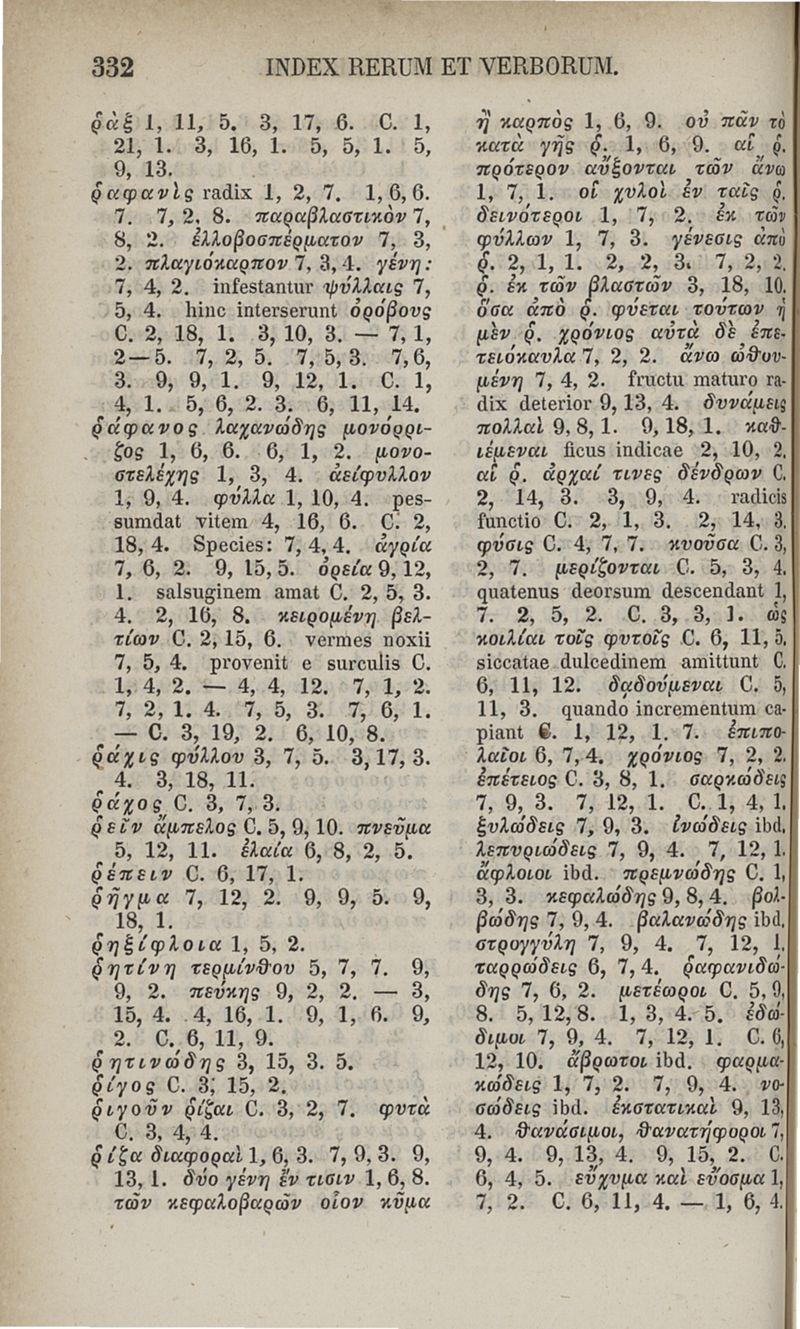 332 INDEX RERUM ET VERBORUM.
ῥὰξ 1, 11, 5. 3, 17, 6. C. 1,
21, 1. 3, 16, 1. 5, 5, 1. 5,
9, 13.
ῥαφανὶς radix 1, 2, 7. 1, 6, 6.
7. 7, 2, 8. παραβλαστικὸν 7,
8, 2. ἐλλοβοσπέρματον 7, 3,
2. πλαγιόκαρπον 7, 3, 4. γένη:
7, 4, 2. infestantur ψύλλαις 7,
5, 4. hinc interserunt ὀρόβους
C. 2, 18, 1. 3, 10, 3. — 7, 1,
2—5. 7, 2, 5. 7, 5, 3. 7, 6,
3. 9, 9, 1. 9, 12, 1. C. 1,
4, 1. 5, 6, 2. 3. 6, 11, 14.
ῥάφανος λαχανώδης μονόρρι-
ζος 1, 6, 6. 6, 1, 2. μονο-
στελέχης 1, 3, 4. ἀείφυλλον
1, 9, 4. φύλλα 1, 10, 4. pes-
sumdat vitem 4, 16, 6. C. 2,
18, 4. Species: 7, 4, 4. ἀγρία
7, 6, 2. 9, 15, 5. ὀρεία 9, 12,
1. salsuginem amat C. 2, 5, 3.
4. 2, 16, 8. κειρομένη βελ-
τίων C. 2, 15, 6. vermes noxii
7, 5, 4. provenit e surculis C.
1, 4, 2. — 4, 4, 12. 7, 1, 2.
7, 2, 1. 4. 7, 5, 3. 7, 6, 1.
— C. 3, 19, 2. 6, 10, 8.
ῥάχις φύλλου 3, 7, 5. 3, 17, 3.
4. 3, 18, 11.
ῥάχος C. 3, 7, 3.
ῥεῖν ἄμπελος C. 5, 9, 10. πνεῦμα
5, 12, 11. ἐλαία 6, 8, 2, 5.
ῥέπειν C. 6, 17, 1.
ῥῆγμα 7, 12, 2. 9, 9, 5. 9,
18, 1.
ῥηξίφλοια 1, 5, 2.
ῥητίνη τερμίνθου 5, 7, 7. 9,
9, 2. πεύκης 9, 2, 2. — 3,
15, 4. 4, 16, 1. 9, 1, 6. 9,
2. C. 6, 11, 9.
ῥητινώδης 3, 15, 3. 5.
ῥίγος C. 3, 15, 2.
ῥιγοῦν ῥίζαι C. 3, 2, 7. φυτὰ
C. 3, 4, 4.
ῥίζα διαφοραὶ 1, 6, 3. 7, 9, 3. 9,
13, 1. δύο γένη ἔν τισιν 1, 6, 8.
τῶν κεφαλοβαρῶν οἷον κῦμα
ἢ καρπὸς 1, 6, 9. οὐ πᾶν τὸ
κατὰ γῆς ῥ. 1, 6, 9. αἱ ῥ.
πρότερον αὔξονται τῶν ἄνω
1, 7, 1. οἱ χυλοὶ ἐν ταῖς ῥ.
δεινότεροι 1, 7, 2. ἐκ τῶν
φύλλων 1, 7, 3. γένεσις ἀπὸ
ῥ. 2, 1, 1. 2, 2, 3. 7, 2, 2.
ῥ. ἐκ τῶν βλαστῶν 3, 18, 10.
ὅσα ἀπὸ ῥ. φύεται τούτων ἡ
μὲν ῥ. χρόνιος αὐτὰ δὲ ἐπε-
τειόκαυλα 7, 2, 2. ἄνω ὠθου-
μένη 7, 4, 2. fructu maturo ra-
dix deterior 9, 13, 4. δυνάμεις
πολλαὶ 9, 8, 1. 9, 18, 1. καθ-
ιέμεναι ficus indicae 2, 10, 2.
αἱ ῥ. ἀρχαί τινες δένδρων C.
2, 14, 3. 3, 9, 4. radicis
functio C. 2, 1, 3. 2, 14, 3.
φύσις C. 4, 7, 7. κυοῦσα C. 3,
2, 7. μερίζονται C. 5, 3, 4.
quatenus deorsum descendant 1,
7. 2, 5, 2. C. 3, 3, 1. ὡς
κοιλίαι τοῖς φυτοῖς C. 6, 11, 5.
siccatae dulcedinem amittunt C.
6, 11, 12. δᾳδούμεναι C. 5,
11, 3. quando incrementum ca-
piant C. 1, 12, 1. 7. ἐπιπο-
λαῖοι 6, 7, 4. χρόνιος 7, 2, 2.
ἐπέτειος C. 3, 8, 1. σαρκώδεις
7, 9, 3. 7, 12, 1. C. 1, 4, 1.
ξυλώδεις 7, 9, 3. ἰνώδεις ibd.
λεπυριώδεις 7, 9, 4. 7, 12, 1.
ἄφλοιοι ibd. πρεμνώδης C. 1,
3, 3. κεφαλώδης 9, 8, 4. βολ-
βώδης 7, 9, 4. βαλανώδης ibd.
στρογγύλη 7, 9, 4. 7, 12, 1.
ταρρώδεις 6, 7, 4. ῥαφανιδώ-
δης 7, 6, 2. μετέωροι C. 5, 9,
8. 5, 12, 8. 1, 3, 4. 5. ἐδώ-
διμοι 7, 9, 4. 7, 12, 1. C. 6,
12, 10. ἄβρωτοι ibd. φαρμα-
κώδεις 1, 7, 2. 7, 9, 4. νο-
σώδεις ibd. ἐκστατικαὶ 9, 13,
4. θανάσιμοι, θανατήφοροι 7,
9, 4. 9, 13, 4. 9, 15, 2. C.
6, 4, 5. εὔχυμα καὶ εὔοσμα 1,
7, 2. C. 6, 11, 4. — 1, 6, 4.